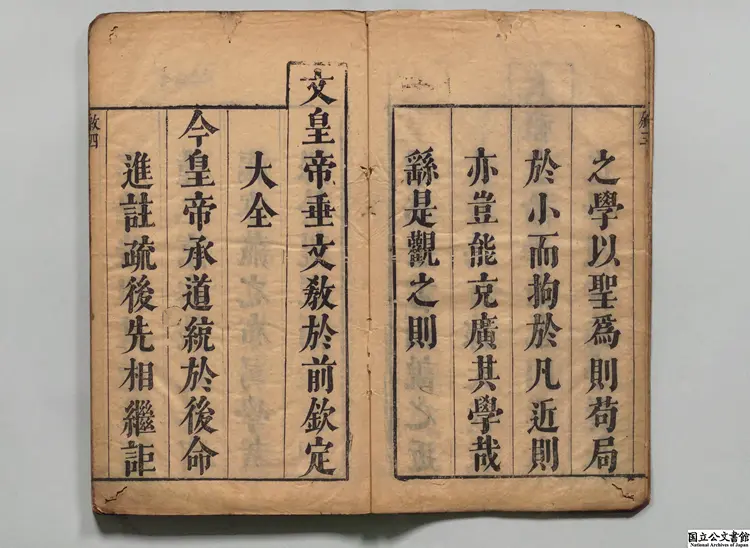 之學以聖爲則苟局
於小而拘於凡近則
亦豈能充廣其學哉
繇是觀之則
文皇帝垂文敎於前欽定
大全
今皇帝承道統於後命
進註疏後先相繼詎
国立公文書館
National Archives of Japan